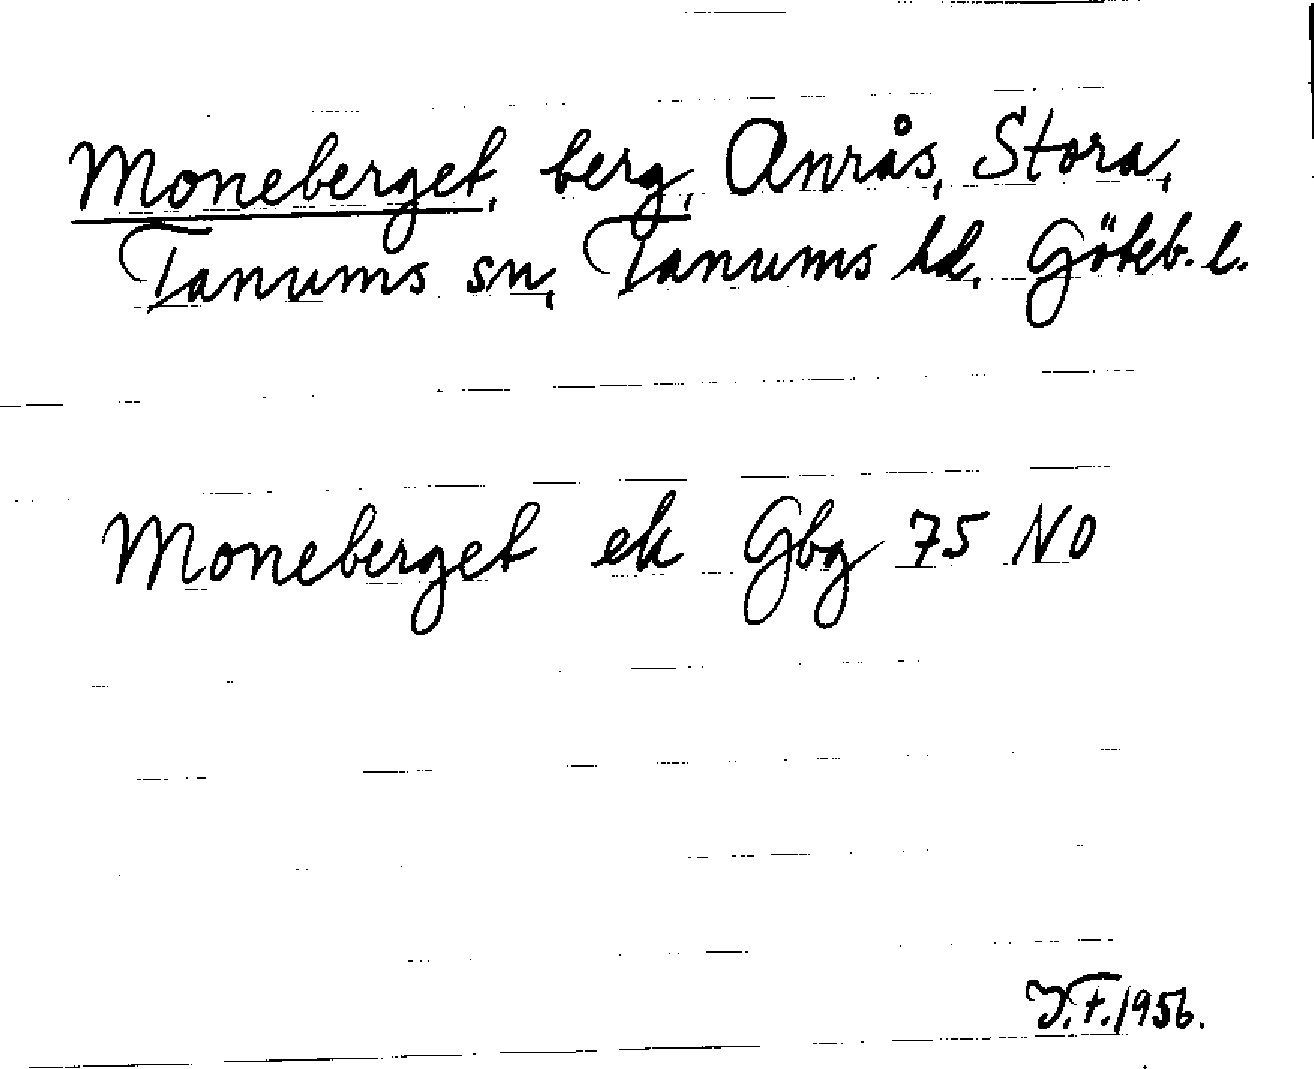 Moneberget, berg, Anrås, Stora,
Tanums sn, Tanums hd. Göteb. l.
Moneberget ek Gbg 75 NO
J.F. 1956.